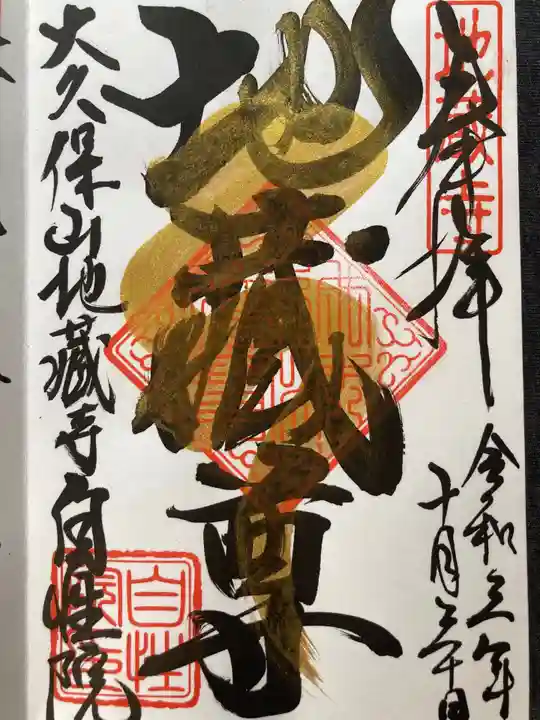 奉拝
地蔵寺
令和三年
十月三十日
地蔵尊
大久保山地蔵寺自性院
自性